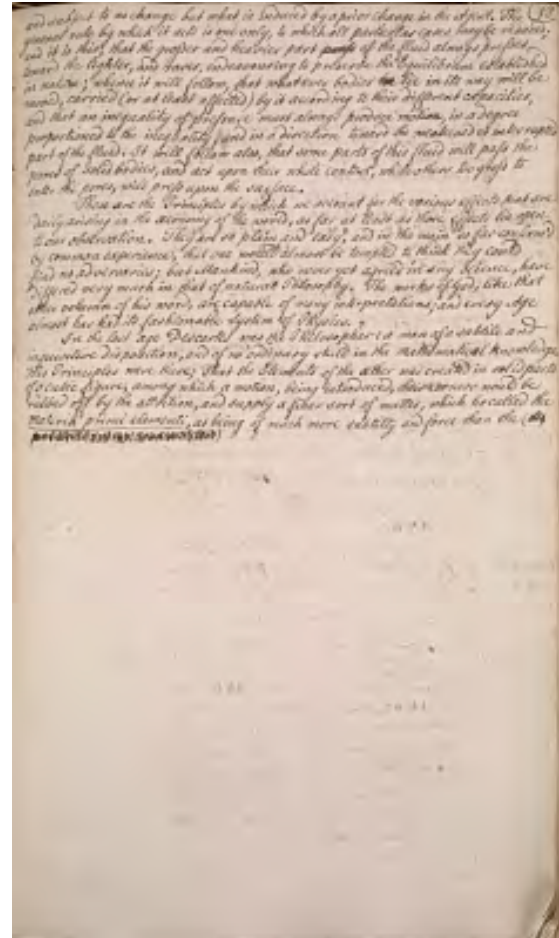 and subject to no change but what is induced by a prior change in the object. The
general rule by which it acts is one only, to which all particular cases may be reduced;
and it is this, that the grosser and heavier part of the fluid always presses
toward the lighter, and rarer, endeavouring to preserve the Equilibrium established
in nature; whence it will follow, that whatever bodies lye in its way will be
moved, carried (or at least affected) by it according to their different capacities,
and that an inequality of pressure must always produce motion, in a degree
proportioned to the inequality, and in a direction toward the weakened
part of the fluid. It will follow also, that some parts of this fluid will pass the
pores of solid bodies, and act upon their whole content, while others too gross to
enter the pores, will press upon the surface.
These are the Principles by which we account for the various effects that are
daily arising in the œconomy of the world, as far at least as those effects lye open
to our observation. They are so plain and easy, and in the main so far confirm'd
by common experience, that one would almost be tempted to think they could
find no adversaries; but Mankind, who never yet agreed in any Science, have
differed very much in that of natural Philosophy. The works of God, like that
other volumn of his word, are capable of many interpretations, and every Age
almost has had its fashionable System of Physics.
In the last age Descartes was the Philosopher: a man of a subtile and
inquisitive disposition, and of no ordinary skill in the mathematical knowledge.
His Principles were these; that the Elements of the æther was created in solid parts
of a cubic figure, among which a motion, being introduced, their corners would be
rubbed off by the attrition, and supply a finer sort of matter, which he called the
materia primi elementi, as being of much more subtilty and force than the